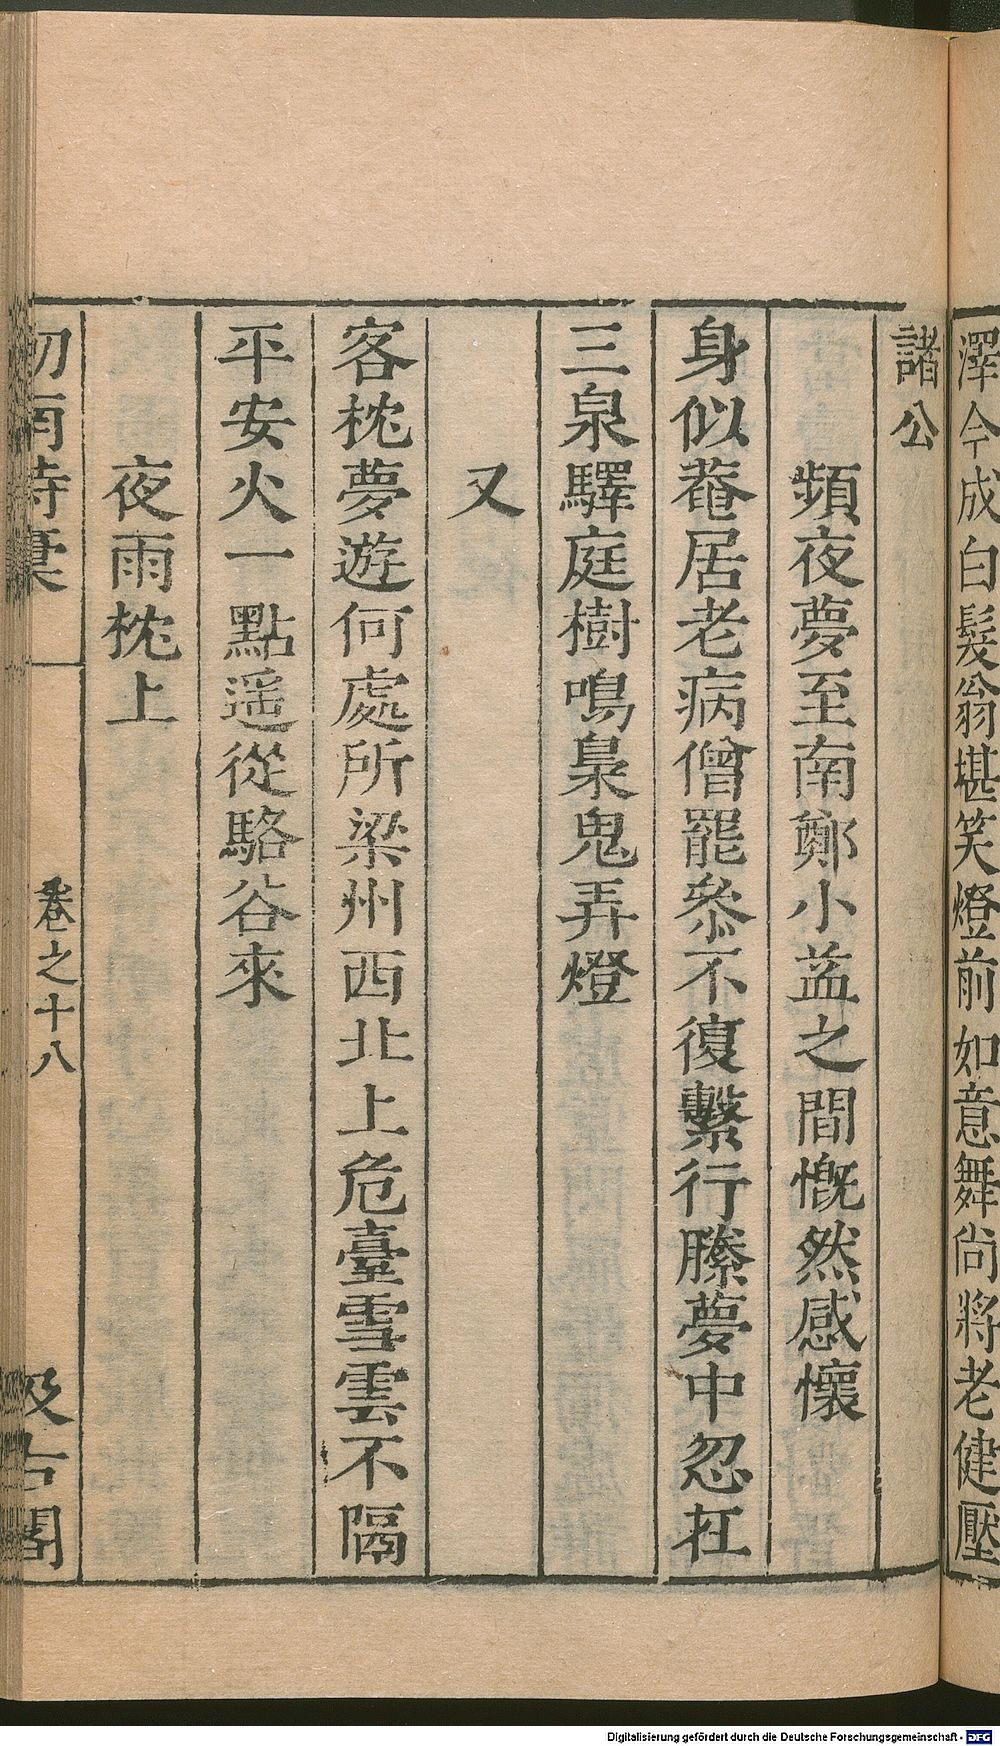 澤今成白髮翁堪笑燈前如意舞尚將老健壓
諸公
頻夜夢至南鄭小益之間慨然感懷
身似菴居老病僧罷叅不復繫行縢夢中忽在
三泉驛庭樹鳴梟鬼弄燈
又
客枕夢遊何處所梁州西北上危臺雪雲不隔
平安火一點遥從駱谷來
夜雨枕上
卷之十八
汲古閣
Digitalisierung gefördert durch die Deutsche Forschungsgemeinschaft - DFG